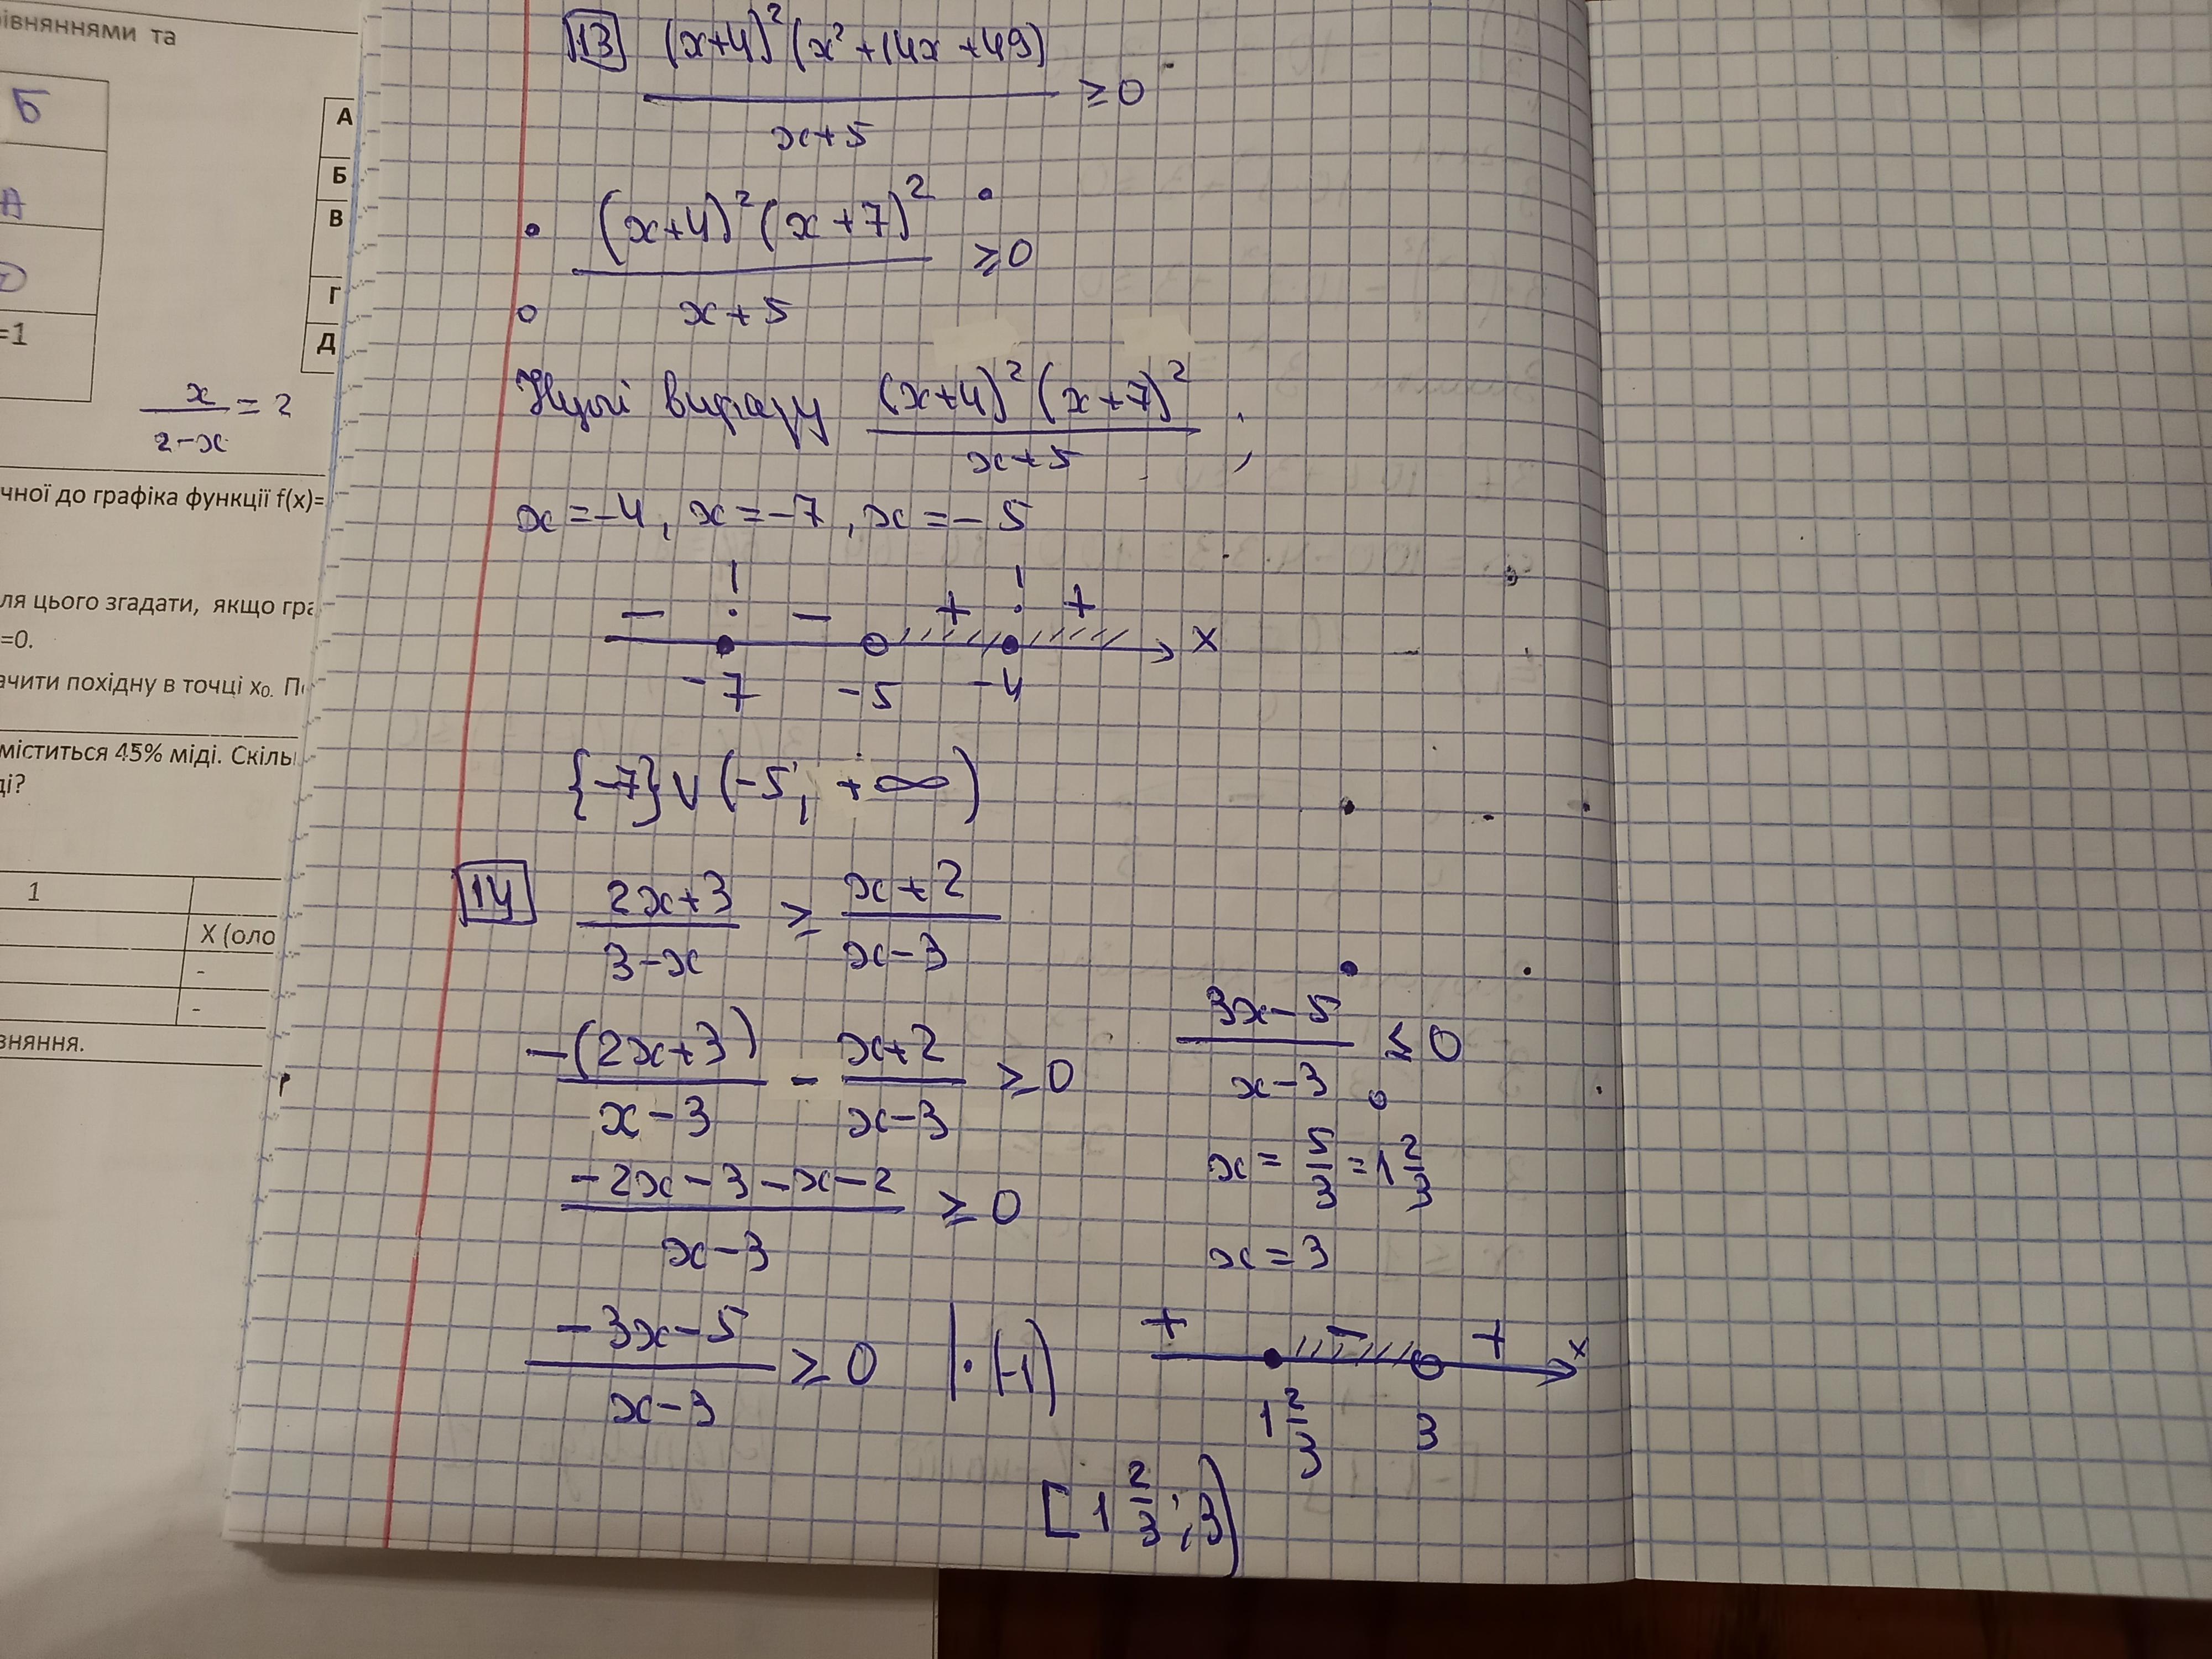 рівняннями та
Б
А
=1
А
Б
В
Г
Д
x/(2-x) = 2
чної до графіка функції f(x)=
ля цього згадати, якщо гра
=0.
ачити похідну в точці x₀. П
міститься 45% міді. Скіль
ді?
1
X (оло
-
-
вняння.
13 (x+4)²(x²+14x+49)/(x+5) ≥ 0
(x+4)²(x+7)²/(x+5) ≥ 0
Нулі виразу (x+4)²(x+7)²/(x+5) ;
x=-4, x=-7, x=-5
- ! - + ! + x
-7 -5 -4
{-7}∪(-5; +∞)
14 (2x+3)/(3-x) ≥ (x+2)/(x-3)
-(2x+3)/(x-3) - (x+2)/(x-3) ≥ 0
(-2x-3-x-2)/(x-3) ≥ 0
(-3x-5)/(x-3) ≥ 0 |·(-1)
(3x-5)/(x-3) ≤ 0
x = 5/3 = 1 2/3
x = 3
+ - + x
1 2/3 3
[1 2/3; 3)